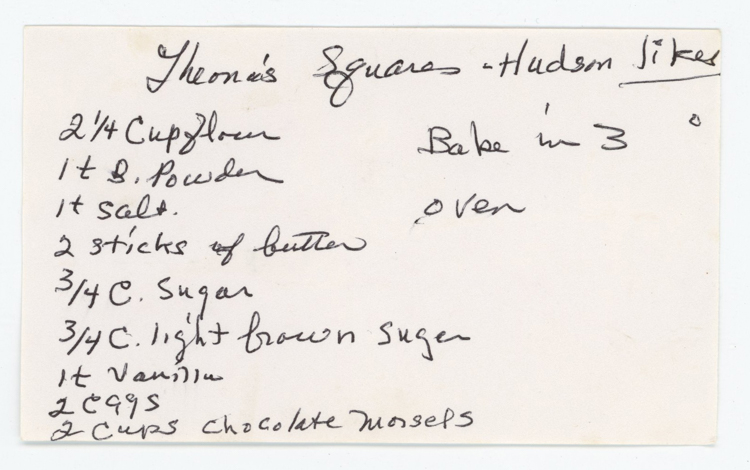 Theonia's Squares - Hudson likes
2 1/4 Cup flour
1t B. Powder
1t salt.
2 sticks of butter
3/4 C. Sugar
3/4 C. light brown sugar
1t Vanilla
2 eggs
2 cups chocolate morsels
Bake in 3 °
oven